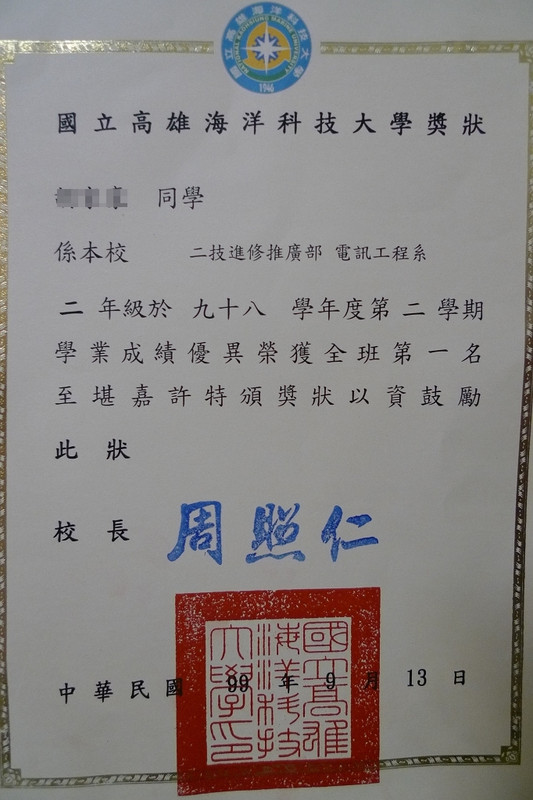 國立高雄海洋科技大學
NATIONAL KAOHSIUNG MARINE UNIVERSITY
1946
國立高雄海洋科技大學獎狀
同學
係本校 二技進修推廣部 電訊工程系
二年級於 九十八 學年度第二學期
學業成績優異榮獲全班第一名
至堪嘉許特頒獎狀以資鼓勵
此狀
校長 周照仁
中華民國 99 年 9 月 13 日
國立高雄海洋科技大學印